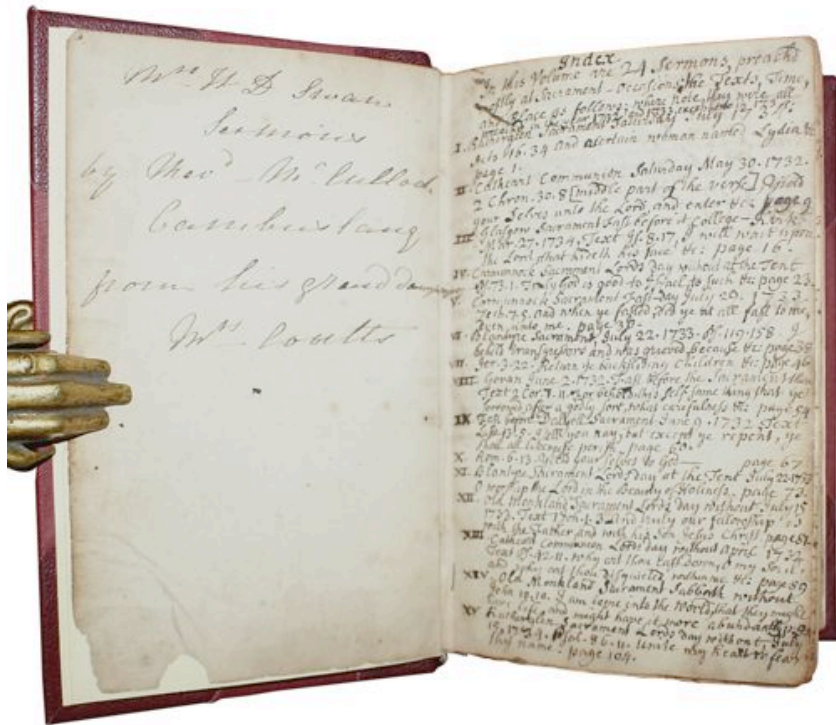 Mrs H D Swan
Sermons
by Revd Mr Cullock
Cambuslang
from his grand
Mrs Coutts
Index
In this Volume are 24 Sermons, preach'd
mostly at Sacrament-Occasions; the Texts, Time,
and place as follows; where note, they were all
preached in the year 1732 and 1733 except
I. Sacrament Saturday July 1734
Acts 16. 34 and a certain woman named Lydia &c
page 1.
II Cathcart Communion Saturday May 30. 1732.
2 Chron. 30. 8 [middle part of the verse]
your Selves unto the Lord, and enter &c: page 9
III Glasgow Sacrament Fast before it College-Kirk
27. 1734, Text Is. 8. 17, I will wait upon
the Lord that hideth his face &c: page 16.
IV. Carmunnock Sacrament Lords Day without at the Tent
Ps. 73. 1. Truly God is good to Israel to such &c page 23.
V. Carmunnock Sacrament Fast-Day July 29. 1733
Zech. 7. 5. and when ye fasted did ye at all fast to me,
even unto me. page 30
VI Blantyre Sacrament, July 22. 1733. Ps. 119. 158. I
beheld transgressors and was grieved because &c: page 38
VII Jer. 3. 22. Return ye backsliding Children &c: page 46
VIII Govan June 2. 1732. Fast before the Sacrament
Text 2 Cor. 7. 11. For behold this self same thing that ye
sorrowed after a godly sort, what carefulness &c: page 54
IX Fast before Sacrament June 9. 1732. Text
Luk. 13. 5. I tell you nay, but except ye repent, ye
shall all likewise perish. page 60.
X. Rom. 6. 13. yield your selves to God page 67
XI. Blantyre Sacrament Lords day at the Tent July 22. 1733
O worship the Lord in the Beauty of Holiness. page 73.
XII. Old Monkland Sacrament Lords day without July 15
1733. Text 1 Joh. 1. 3. and truly our fellowship is
with the Father, and with his Son Jesus Christ. page 81.
XIII Cathcart Communion Lords day without april 1734
Text Ps. 42. 11. why art thou cast down, o my soul
and why art thou disquieted within me &c: page 89
XIV. Old Monkland Sacrament Sabbath without
John 10. 10. I am come into the World, that they might
have life, and might have it more abundantly.
XV Rutherglen Sacrament Lords day without July
1734. Psal. 86. 11. Unite my heart to fear
thy name. page 104.